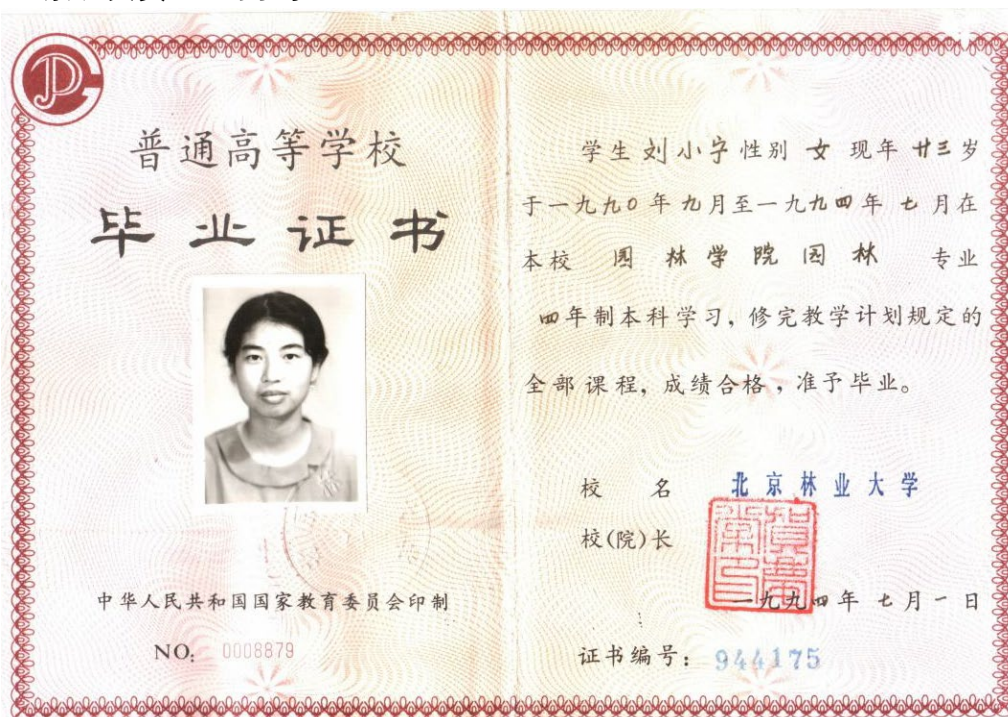 普通高等学校
毕业证书
中华人民共和国国家教育委员会印制
NO: 0008879
学生 刘小宇 性别 女 现年 廿三 岁
于一九九0年九月至一九九四年七月在
本校 园林学院园林 专业
四年制本科学习,修完教学计划规定的
全部课程,成绩合格,准予毕业。
校 名 北京林业大学
校(院)长
一九九四年七月一日
证书编号: 944175